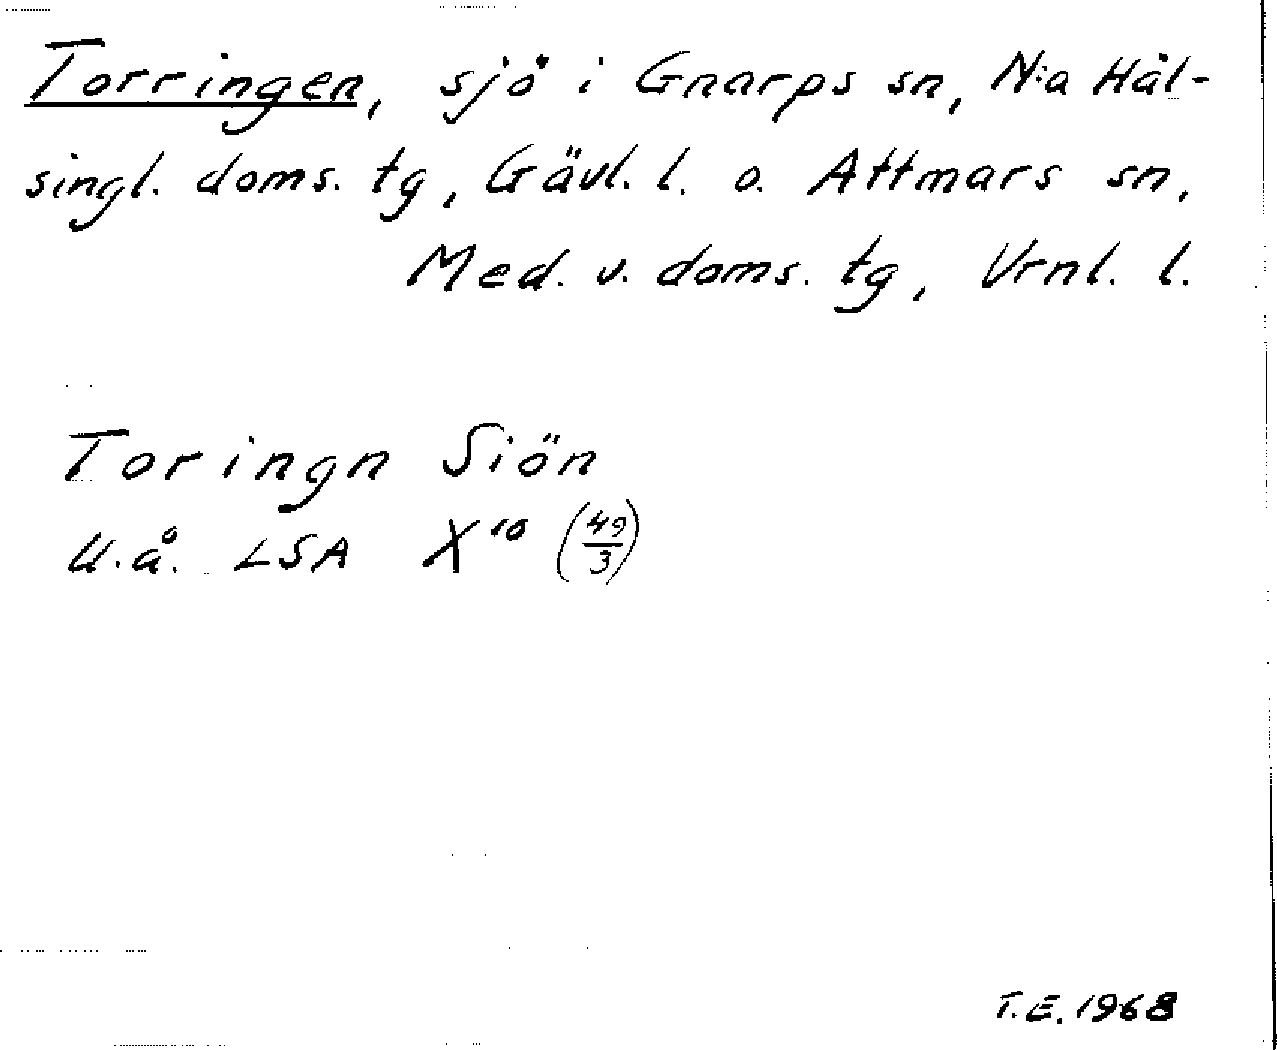 Torringen, sjö i Gnarps sn, N:a Häl-
singl. doms. tg, Gävl. l. o. Attmars sn,
Med. v. doms. tg, Vrnl. l.
Toringn Siön
U.å. LSA X¹⁰ (49/3)
T.E. 1968